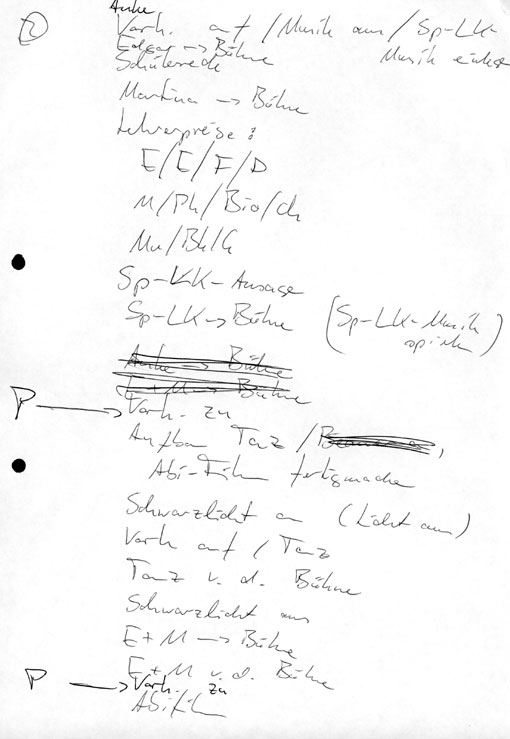 2
Anke
Vorh. auf / Musik aus / Sp-LK-
Musik einlege
Edgar → Bühne
Schülerrede
Martina → Bühne
Lehrerpreise:
E/E/F/D
M/Ph/Bio/Ch
Mu/BK/G
Sp-LK-Ansage
Sp-LK → Bühne (Sp-LK-Musik
spielen)
Anke → Bühne
E+M → Bühne
P → Vorh. zu
Aufbau Tanz /
Abi-Film fertigmache
Schwarzlicht an (Licht aus)
Vorh auf / Tanz
Tanz v. d. Bühne
Schwarzlicht aus
E+M → Bühne
E+M v.d. Bühne
P → Vorh. zu
Abifilm